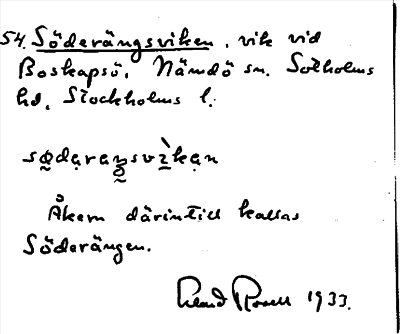 54. Söderängsviken, vik vid
Boskapsö, Nämdö sn. Sotholms
hd, Stockholms l.
sødəraŋsvìkən
Åkern därintill kallas
Söderängen.
1933.